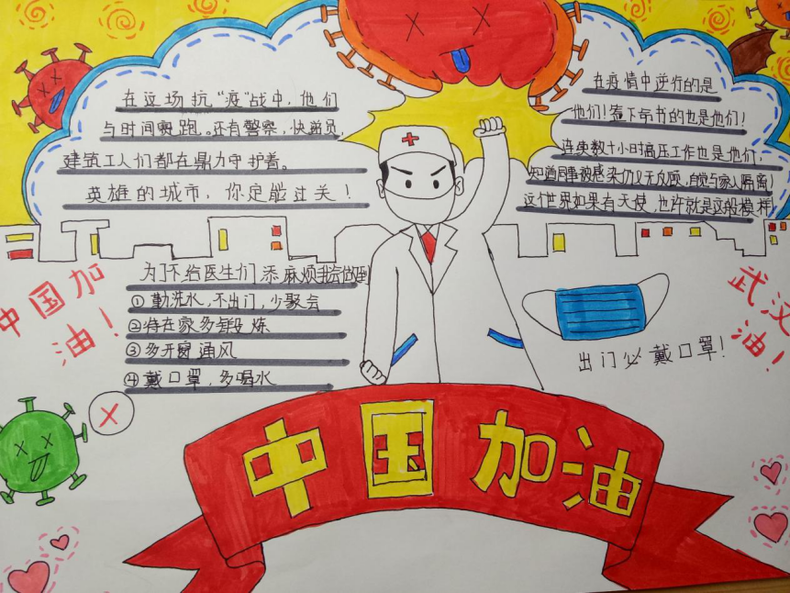 在这场抗“疫”战中，他们
与时间赛跑。还有警察，快递员，
建筑工人们都在鼎力守护着。
英雄的城市，你定能过关！
在疫情中逆行的是
他们！下命书的也是他们！
连续数十小时高压工作也是他们，
知道同事被感染仍义无反顾，自觉与家人隔离！
这个世界如果有天使，也许就是这般模样
中国加
油！
为了不给医生们添麻烦我会做到
①勤洗水，不出门，少聚会
②待在家多锻炼
③多开窗通风
④戴口罩，多喝水
武汉
油！
出门必戴口罩！
中国加油